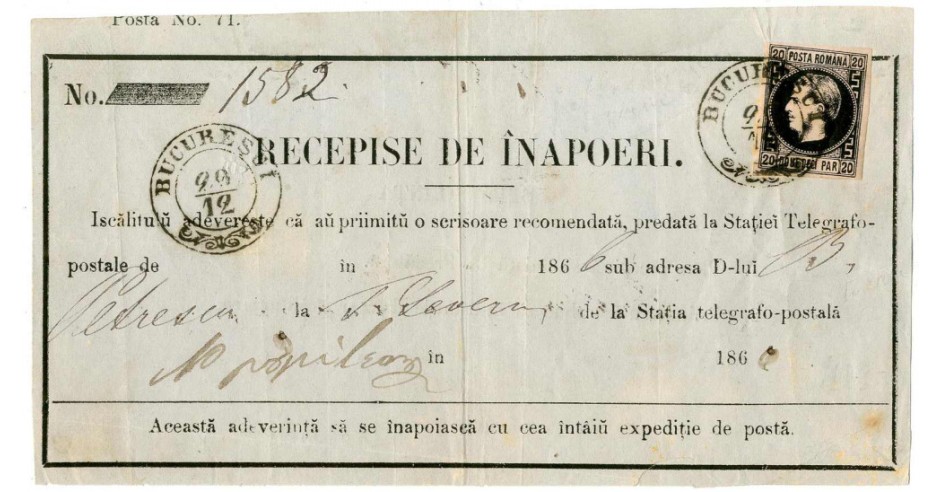 Posta No. 71.
No. 1582
20 POSTA ROMÂNA 20
20 PAR 20
BUCURESCI
BUCURESCI
28
12
RECEPISE DE ÎNAPOERI.
Iscălitulŭ adeverește că aŭ priimitŭ o scrisoare recomendată, predată la Statieĭ Telegrafo-
postale de în 1866 sub adresa D-lui B.
Petrescu la T. Severin, de la Stația telegrafo-postală
în 186
Această adeverință să se înapoiască cu cea întâiŭ expediție de postă.